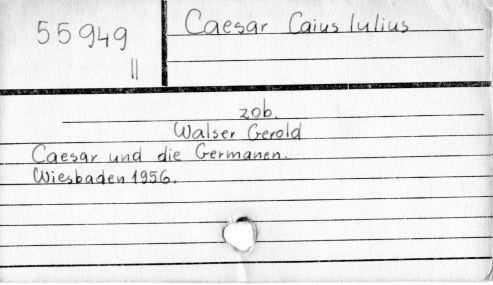 55949
II
Caesar Caius Iulius
zob.
Walser Gerold
Caesar und die Germanen.
Wiesbaden 1956.